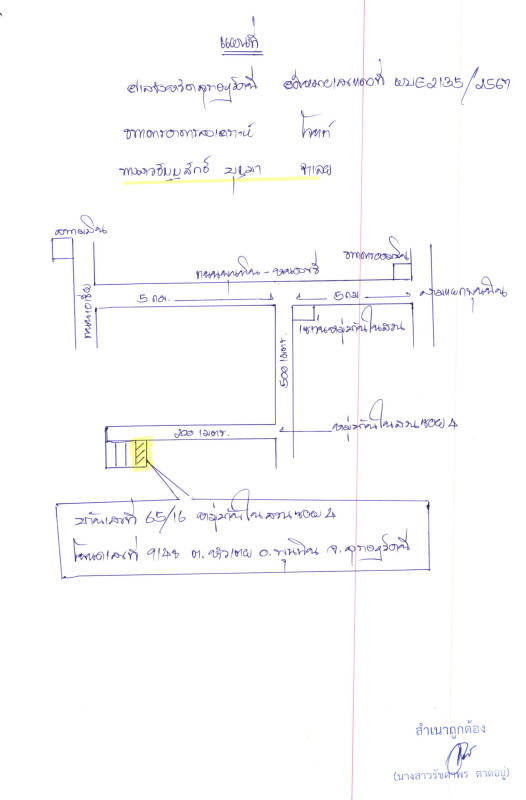 แผนที่
ศาลจังหวัดสุราษฎร์ธานี คดีหมายเลขแดงที่ ผบE2135/2567
ธนาคารอาคารสงเคราะห์ โจทก์
จำเลย
สนามบิน
ธนาคารออมสิน
ถนนพุนพิน - หนองขรี
5 กม. 5 กม.
สามแยกพุนพิน
ถนนเอเชีย
500 เมตร
หมู่บ้านในสวน
200 เมตร.
หมู่บ้านในสวน ซอย 4
บ้านเลขที่ 65/16 หมู่บ้านในสวนซอย 4
โฉนดเลขที่ 9148 ต.หัวเตย อ.พุนพิน จ.สุราษฎร์ธานี
สำเนาถูกต้อง
(นางสาวรัชดาพร ตาดอยู่)